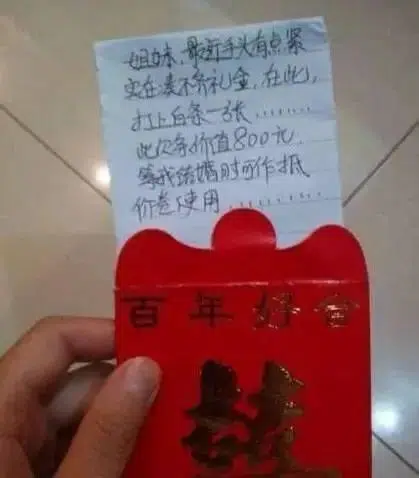 姐妹,最近手头有点紧
实在凑不齐礼金,在此,
打上白条一张........
此欠条价值800元,
等我结婚时可作抵
价卷使用...........
百年好合
囍